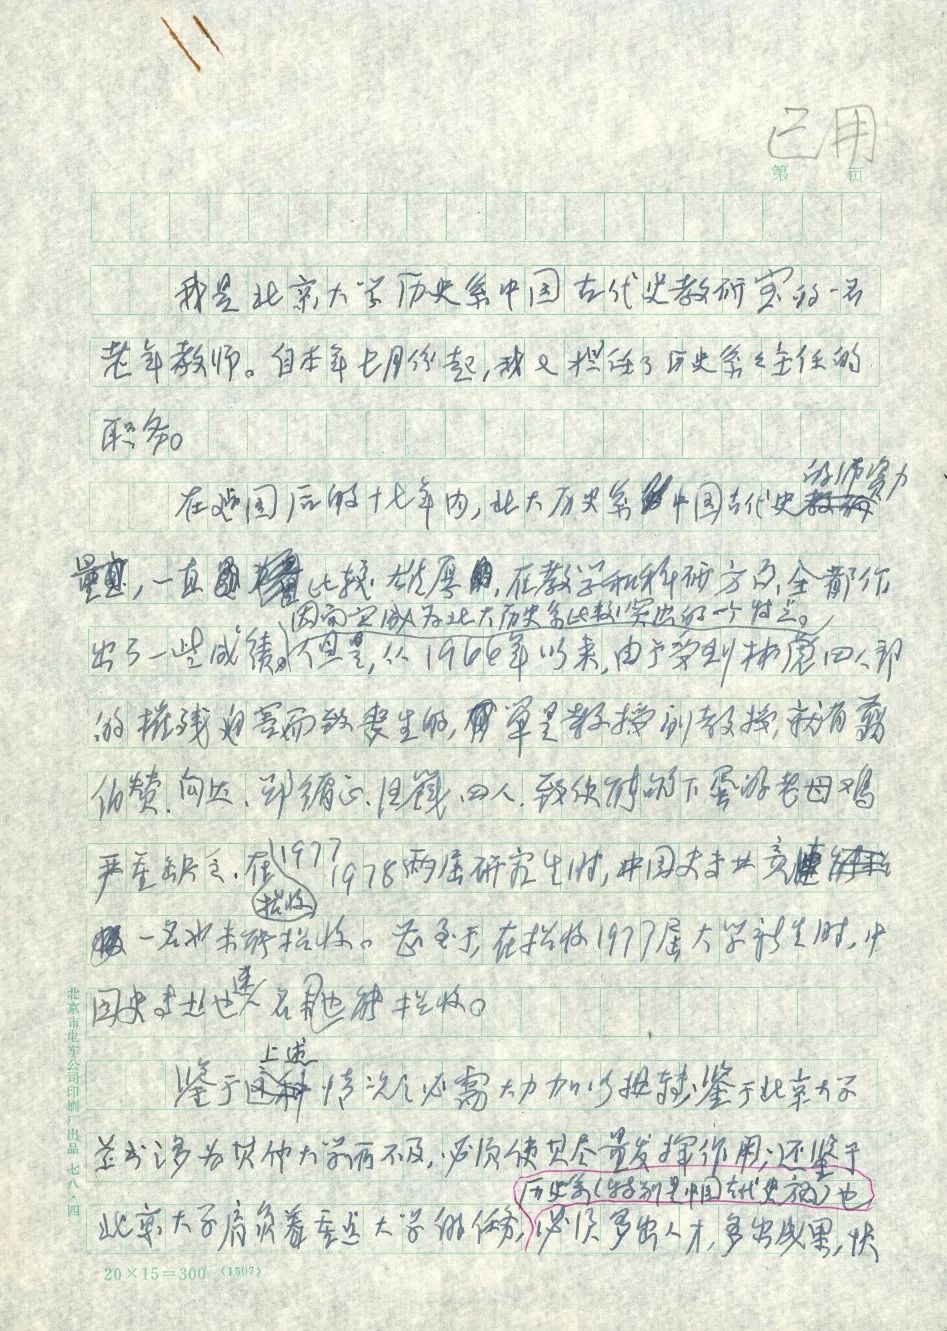 已用
第 页
我是北京大学历史系中国古代史教研室的一名
老年教师。自本年七月份起,我又担任了历史系主任的
职务。
的师资力
在建国后的十七年内,北大历史系中国古代史
量,一直比较雄厚,在教学和科研方面,全都作
因而它成为北大历史系比较突出的一个特点。
出了一些成绩。但是,从1966年以来,由于受到林彪四人帮
的摧残迫害而致丧生的,单是教授副教授,就有翦
伯赞、向达、邵循正、汪籛四人,致使能下蛋的老母鸡
严重缺乏,在1977
招收
1978两届研究生时,中国史专业竟
一名也未能招收。甚至于,在招收1977届大学新生时,中
国史专业也连一名也能招收。
上述
鉴于情况,必需大力加以扭转;鉴于北京大学
有许多为其他大学所不及,必须使其尽量发挥作用;还鉴于
历史系(特别是中国古代史方面)也
北京大学肩负着重点大学的任务,必须多出人才,多出成果,快
北京市电车公司印刷厂出品 七八·四
20×15=300 (1507)